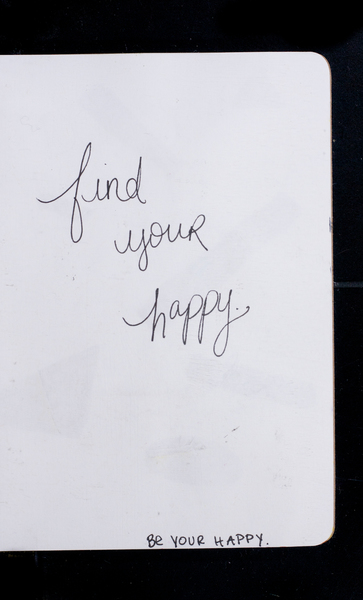 find
your
happy.
Be YOUR HAPPY.